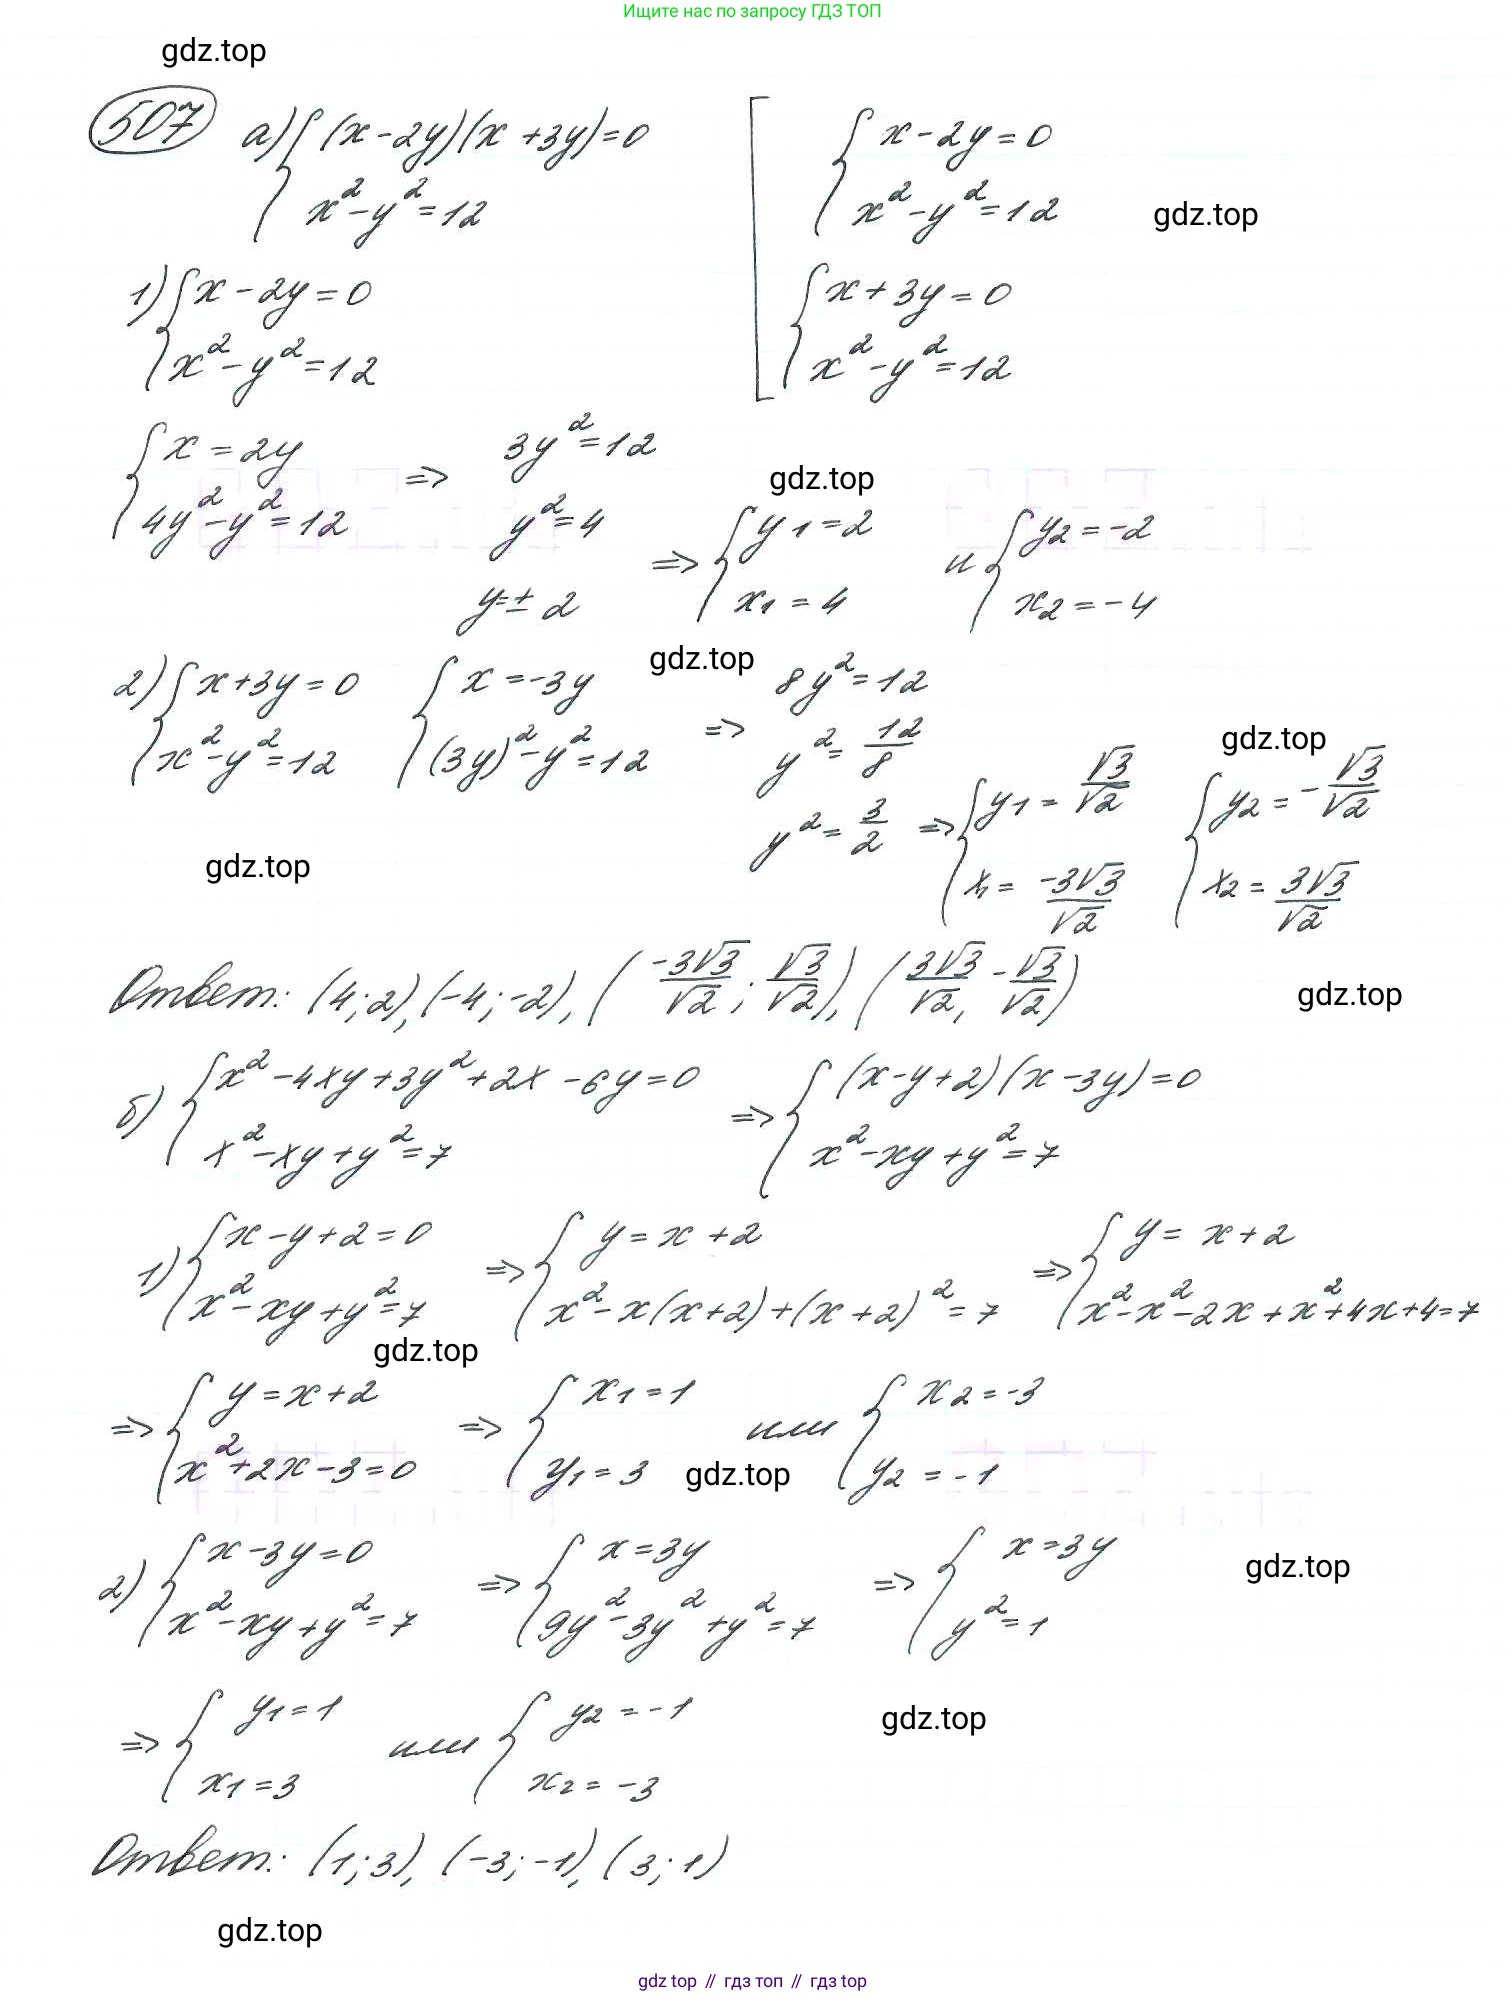 Ищите нас по запросу ГДЗ ТОП
gdz.top
507 а) { (x-2y)(x+3y)=0
x²-y²=12
[ { x-2y=0
x²-y²=12
gdz.top
{ x+3y=0
x²-y²=12
1) { x-2y=0
x²-y²=12
{ x=2y
4y²-y²=12
=> 3y²=12
y²=4
y=±2
gdz.top
=> { y₁=2
x₁=4
и { y₂=-2
x₂=-4
2) { x+3y=0
x²-y²=12
{ x=-3y
(3y)²-y²=12
gdz.top
=> 8y²=12
y²=12/8
y²=3/2
gdz.top
=> { y₁=√3/√2
x₁=-3√3/√2
{ y₂=-√3/√2
x₂=3√3/√2
gdz.top
Ответ: (4;2), (-4;-2), (-3√3/√2; √3/√2), (3√3/√2, -√3/√2)
gdz.top
б) { x²-4xy+3y²+2x-6y=0
x²-xy+y²=7
=> { (x-y+2)(x-3y)=0
x²-xy+y²=7
1) { x-y+2=0
x²-xy+y²=7
=> { y=x+2
x²-x(x+2)+(x+2)²=7
=> { y=x+2
x²-x²-2x+x²+4x+4=7
gdz.top
=> { y=x+2
x²+2x-3=0
=> { x₁=1
y₁=3
или { x₂=-3
y₂=-1
gdz.top
2) { x-3y=0
x²-xy+y²=7
=> { x=3y
9y²-3y²+y²=7
=> { x=3y
y²=1
gdz.top
=> { y₁=1
x₁=3
или { y₂=-1
x₂=-3
gdz.top
Ответ: (1;3), (-3;-1), (3;1)
gdz.top
gdz top // гдз топ // гдз top